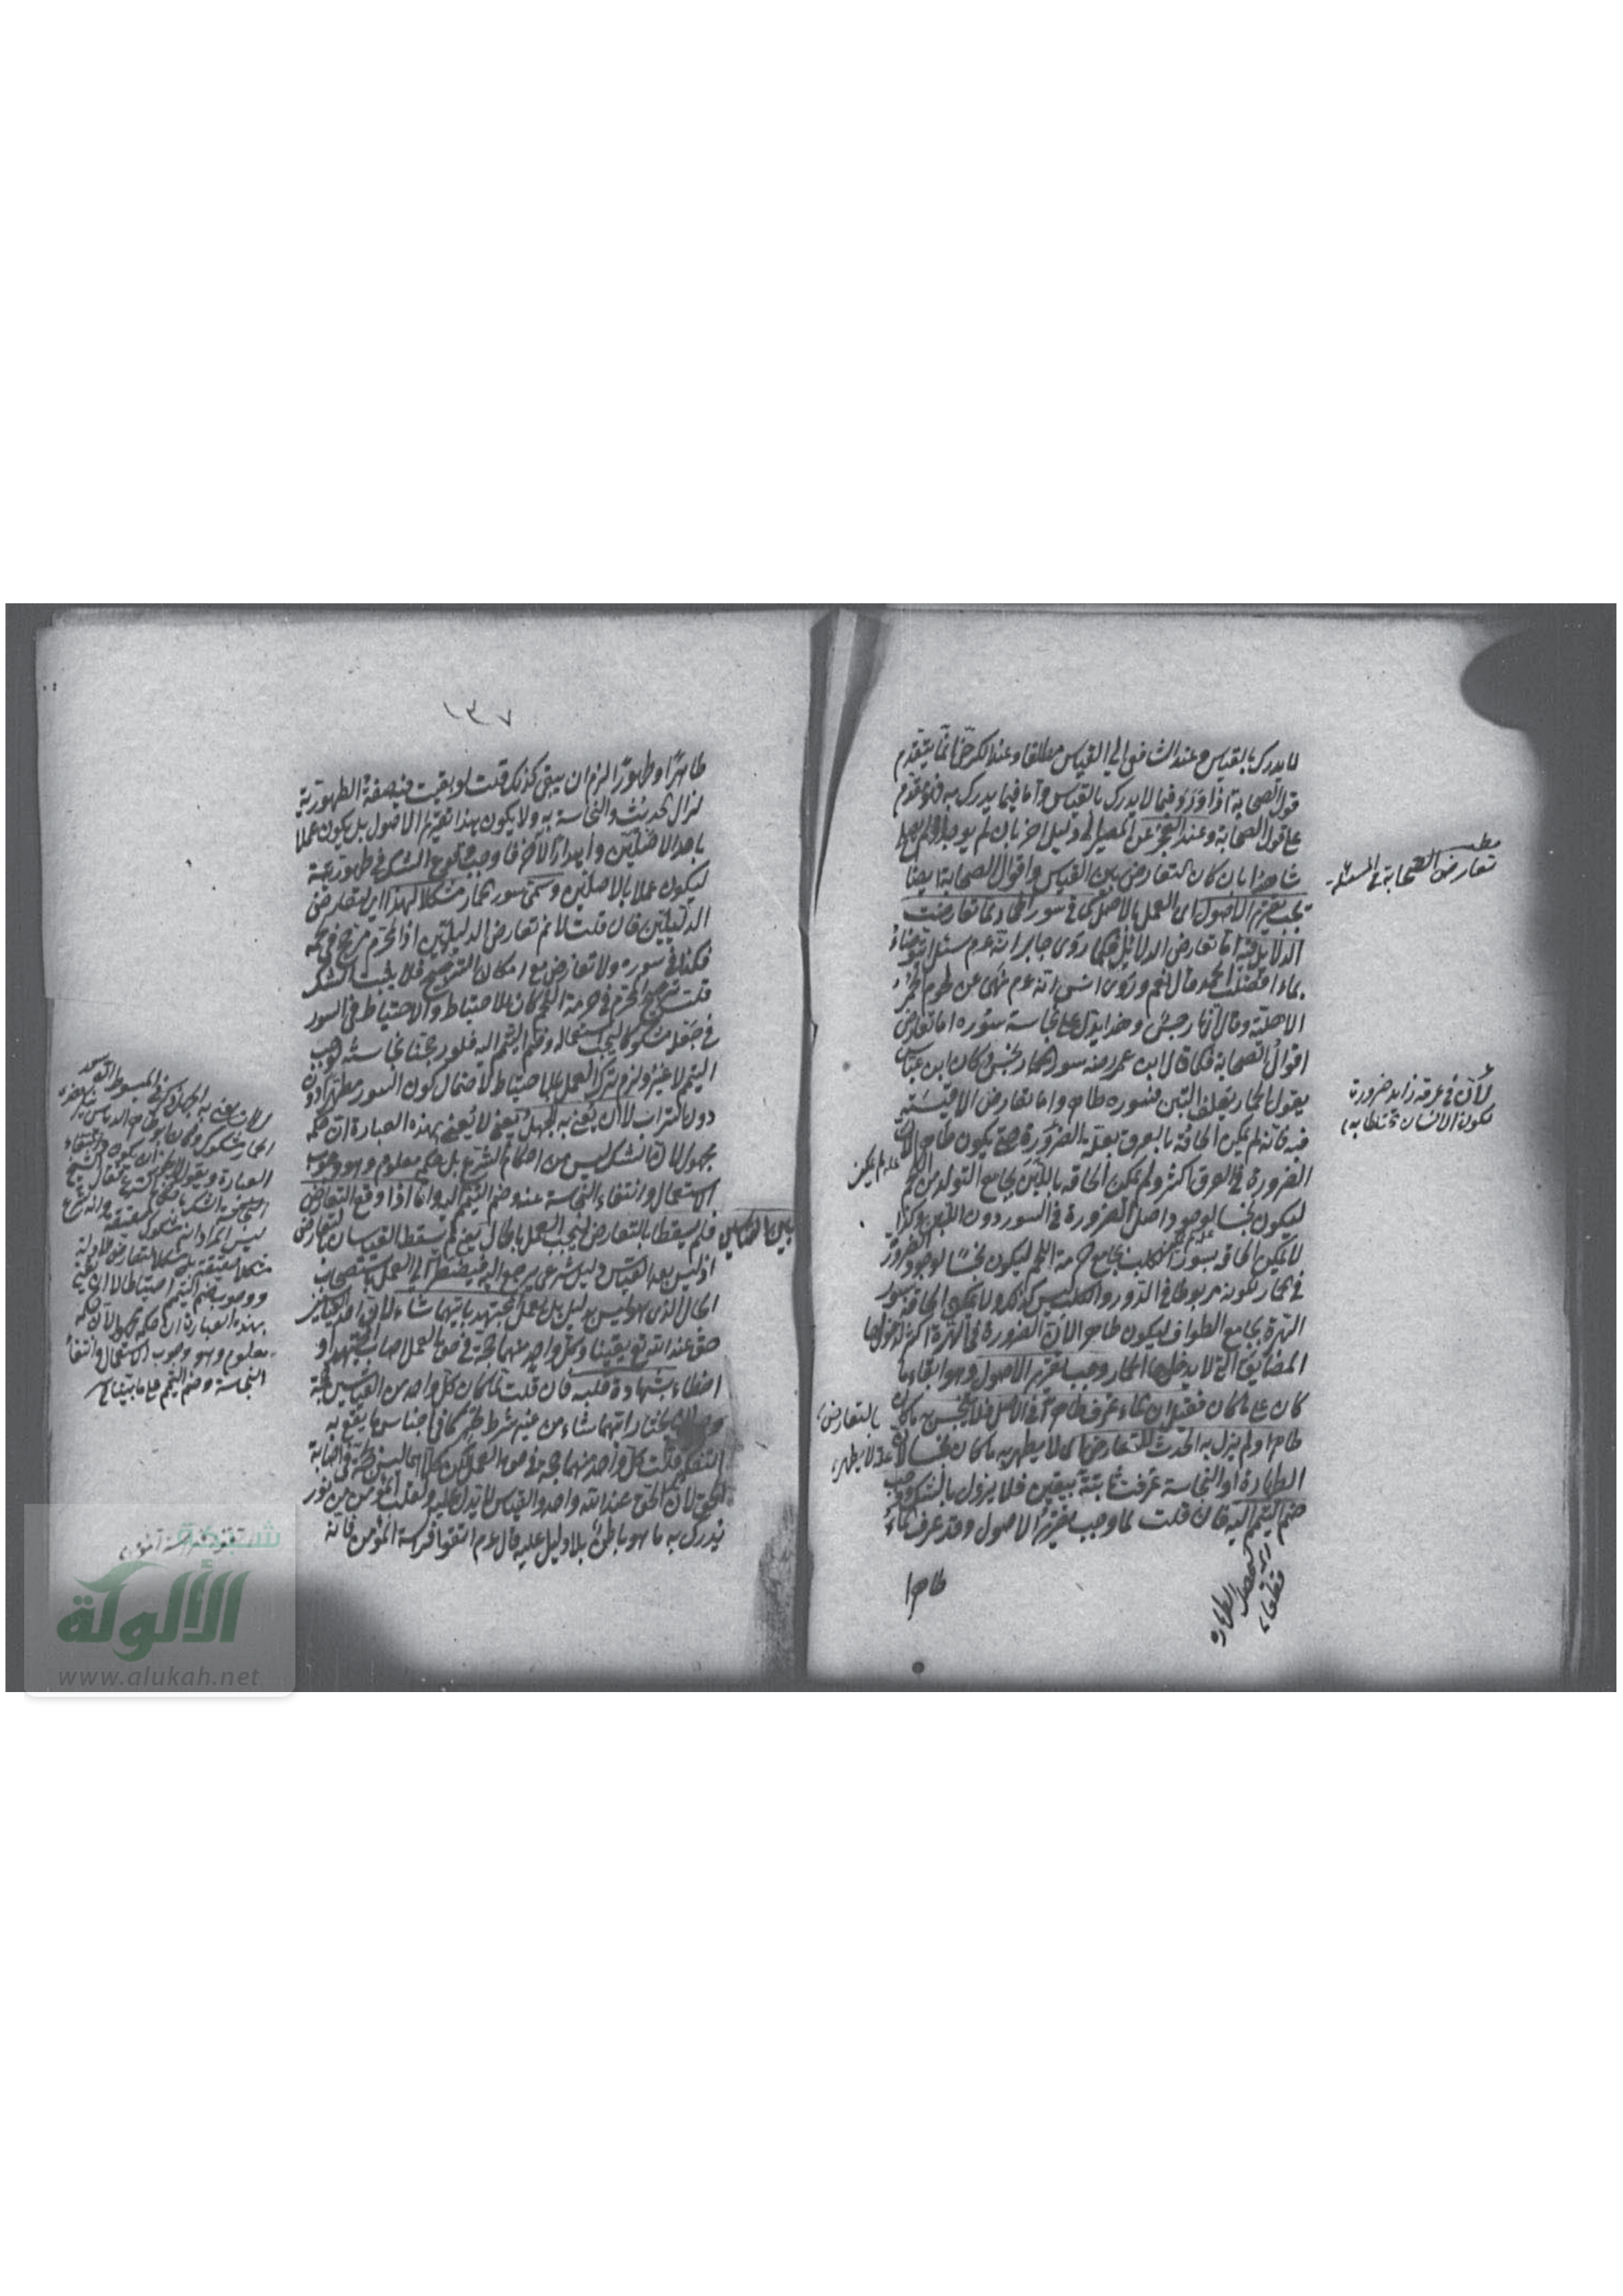 لا يدرك بالقياس وعند الشافعي الي القياس مطلقا وعند الكرخي انما يتقدم
قول الصحابة اذا ورد فيما لا يدرك بالقياس واما فيما يدرك به فهو مقدم
على قول الصحابة وعند العجز عن المصير الى دليل اخر بان لم يوجد
شاهدا بان كان التعارض بين القياس واقوال الصحابة ايضا
يجب تقرير الاصول اى العمل بالاصل كما في سور الحمار لما تعارضت
الدلائل فيه اما تعارض الدلائل فكما روى جابر انه عم سئل انتوضاء
بماء افضلت الحمر قال نعم وروى انس انه عم نهى عن لحوم الحمر
الاهلية وقال انها رجس وهذا يدل على نجاسة سوره اما تعارض
اقوال الصحابة فكما قال ابن عمر رضه سور الحمار نجس وكان ابن عباس
يقول الحمار يعلف التبن فسوره طاهر واما تعارض الاقيسة
فيه فانه لم يكن الحاقه بالعرق بعلة الضرورة حتى يكون طاهرا لان
الضرورة في العرق اكثر ولم يمكن الحاقه باللبن بجامع التولد من اللحم
ليكون نجسا لوجود اصل الضرورة في السور دون اللبن وكذا
لا يمكن الحاقه بسور الكلب بجامع حرمة اللحم ليكون نجسا لوجود الضرورة
في الحمار لكونه مربوطا في الدور والكلب ليس كذلك ولا يمكن الحاقه بسور
الهرة بجامع الطواف ليكون طاهرا لان الضرورة في الهرة اكثر لدخولها
المضائق التي لا يدخلها الحمار وجب تقرير الاصول وهو ابقاء ما
كان على ما كان فقيل ان الماء عرف طاهرا في الاصل فلا يتنجس به ما كان
طاهرا ولم يزل به الحدث للتعارض اى لا يطهر به ما كان نجسا لان
الطهارة او النجاسة عرفت ثابتة بيقين فلا يزول بالشك ووجب
ضم التيمم اليه فان قلت لما وجب تقرير الاصول وقد عرف الماء
طاهرا
مطلب
تعارض الصحابة في المسئلة
لان في عرقه زايد ضرورة
لكون الانسان تختلط به
علة لم يكن
بالتعارض
علة لا يطهر
لتحصل الطهارة
قطعا
١٣٧
طاهرا وطهورا لزم ان يبقى كذلك قلت لو بقيت فيه صفة الطهورية
لزال الحدث والنجاسة به ولا يكون هذا تقرير الاصول بل يكون عملا
باحد الاصلين واهدار الآخر فاوجب وقوع الشك في طهوريته
ليكون عملا بالاصلين وسمى سور الحمار مشكلا لهذا اي لتعارض
الدليلين فان قلت لا نم تعارض الدليلين اذ المحرم مرجح في لحمه
فكذا في سوره ولا تعارض مع امكان الترجيح فلا يجب الشك
قلت ترجيح المحرم في حرمة اللحم كان للاحتياط والاحتياط في السور
في جعله مشكوكا ليجب استعماله وضم التيمم اليه فلو رجحنا نجاسته لوجب
التيمم لا غير ولزم ترك العمل بالاحتياط لاحتمال كون السور مطهرا دون
دون التراب لا ان يعنى به الجهل يعنى لا يعنى بهذه العبارة ان حكمه
مجهول لان الشك ليس من احكام الشرع بل حكمه معلوم وهو وجوب
الاستعمال وانتفاء النجاسة عنه وضم التيمم اليه واما اذا وقع التعارض
بين القياسين فلم يسقطا بالتعارض ليجب العمل بالحال يعنى لم يسقط القياسان بالتعارض
اذ ليس بعد القياس دليل شرعي يرجع اليه فيضطر الى العمل باستصحاب
الحال الذي هو ليس بدليل بل يعمل المجتهد بايهما شاء لان احد القياسين
حق عند الله تع يقينا وكل واحد منهما حجة في حق العمل اصاب المجتهد او
اخطاء بشهادة قلبه فان قلت لما كان كل واحد من القياسين حجة
يختار ايهما شاء من غير شرط التحرى كما في اجناس ما يقع به
التكفير قلت كل واحد منهما حجة في حق العمل لكن كلاهما ليس حجة في اصابة
الحق لان الحق عند الله واحد والقياس لا يدل عليه ولقلب المؤمن نور
يدرك به ما هو باطن بلا دليل عليه قال عم اتقوا فراسة المؤمن فانه
العبارة ويقول
ليس المراد انه مشكوك
مشكلا
ووجوب ضم التيمم احتياطا لا ان يعنى
بهذه العبارة ان حكمه مجهول لان حكمه
معلوم وهو وجوب الاستعمال وانتفاء
النجاسة وضم التيمم على ما بينا
شبكة
الألوكة
www.alukah.net